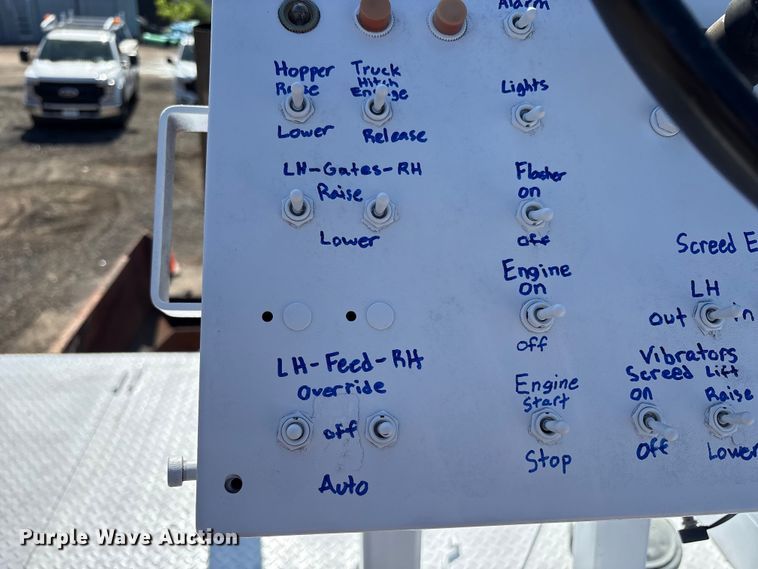 Alarm
Hopper
Raise
Lower
Truck
Hitch
Engage
Release
Lights
LH-Gates-RH
Raise
Lower
Flasher
on
off
Screed E
LH
out
in
Engine
On
off
LH-Feed-RH
Override
off
Auto
Engine
Start
Stop
Vibrators
Screed Lift
on
Off
Raise
Lower
Purple Wave Auction